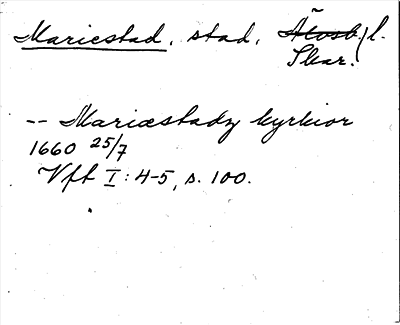 Mariestad, stad, Älvsb. l.
Skar.
-- Mariæstadz kyrkior
1660 25/7
Vft I: 4-5, s. 100.